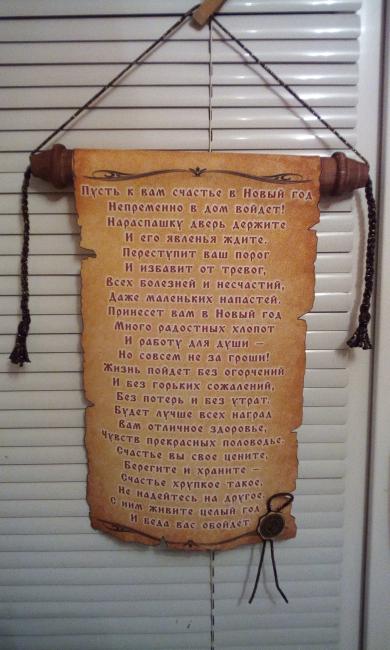 Пусть к вам счастье в Новый год
Непременно в дом войдет!
Нараспашку дверь держите
И его явленья ждите.
Переступит ваш порог
И избавит от тревог,
Всех болезней и несчастий,
Даже маленьких напастей.
Принесет вам в Новый год
Много радостных хлопот
И работу для души –
Но совсем не за гроши!
Жизнь пойдет без огорчений
И без горьких сожалений,
Без потерь и без утрат.
Будет лучше всех наград
Вам отличное здоровье,
Чувств прекрасных половодье.
Счастье вы свое цените,
Берегите и храните –
Счастье хрупкое такое.
Не надейтесь на другое.
С ним живите целый год
И беда вас обойдет